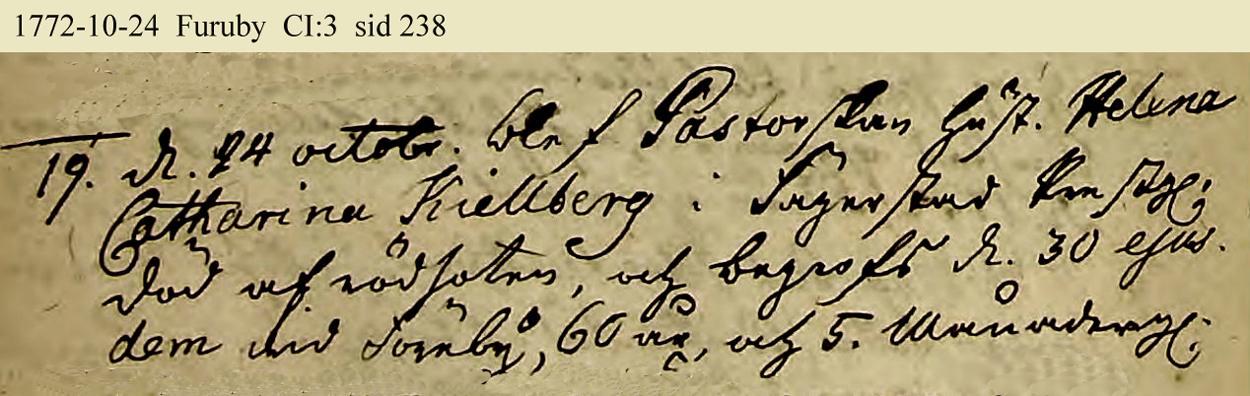 1772-10-24 Furuby CI:3 sid 238
19. d. 24 octobr. blef Pastorskan Hust. Helena
Catharina Kiellberg i Tägerstad Prestg:
död af rödsoten, och begrofs d. 30 ejus.
dem vid Foruby, 60 år, och 5. Månaderg: